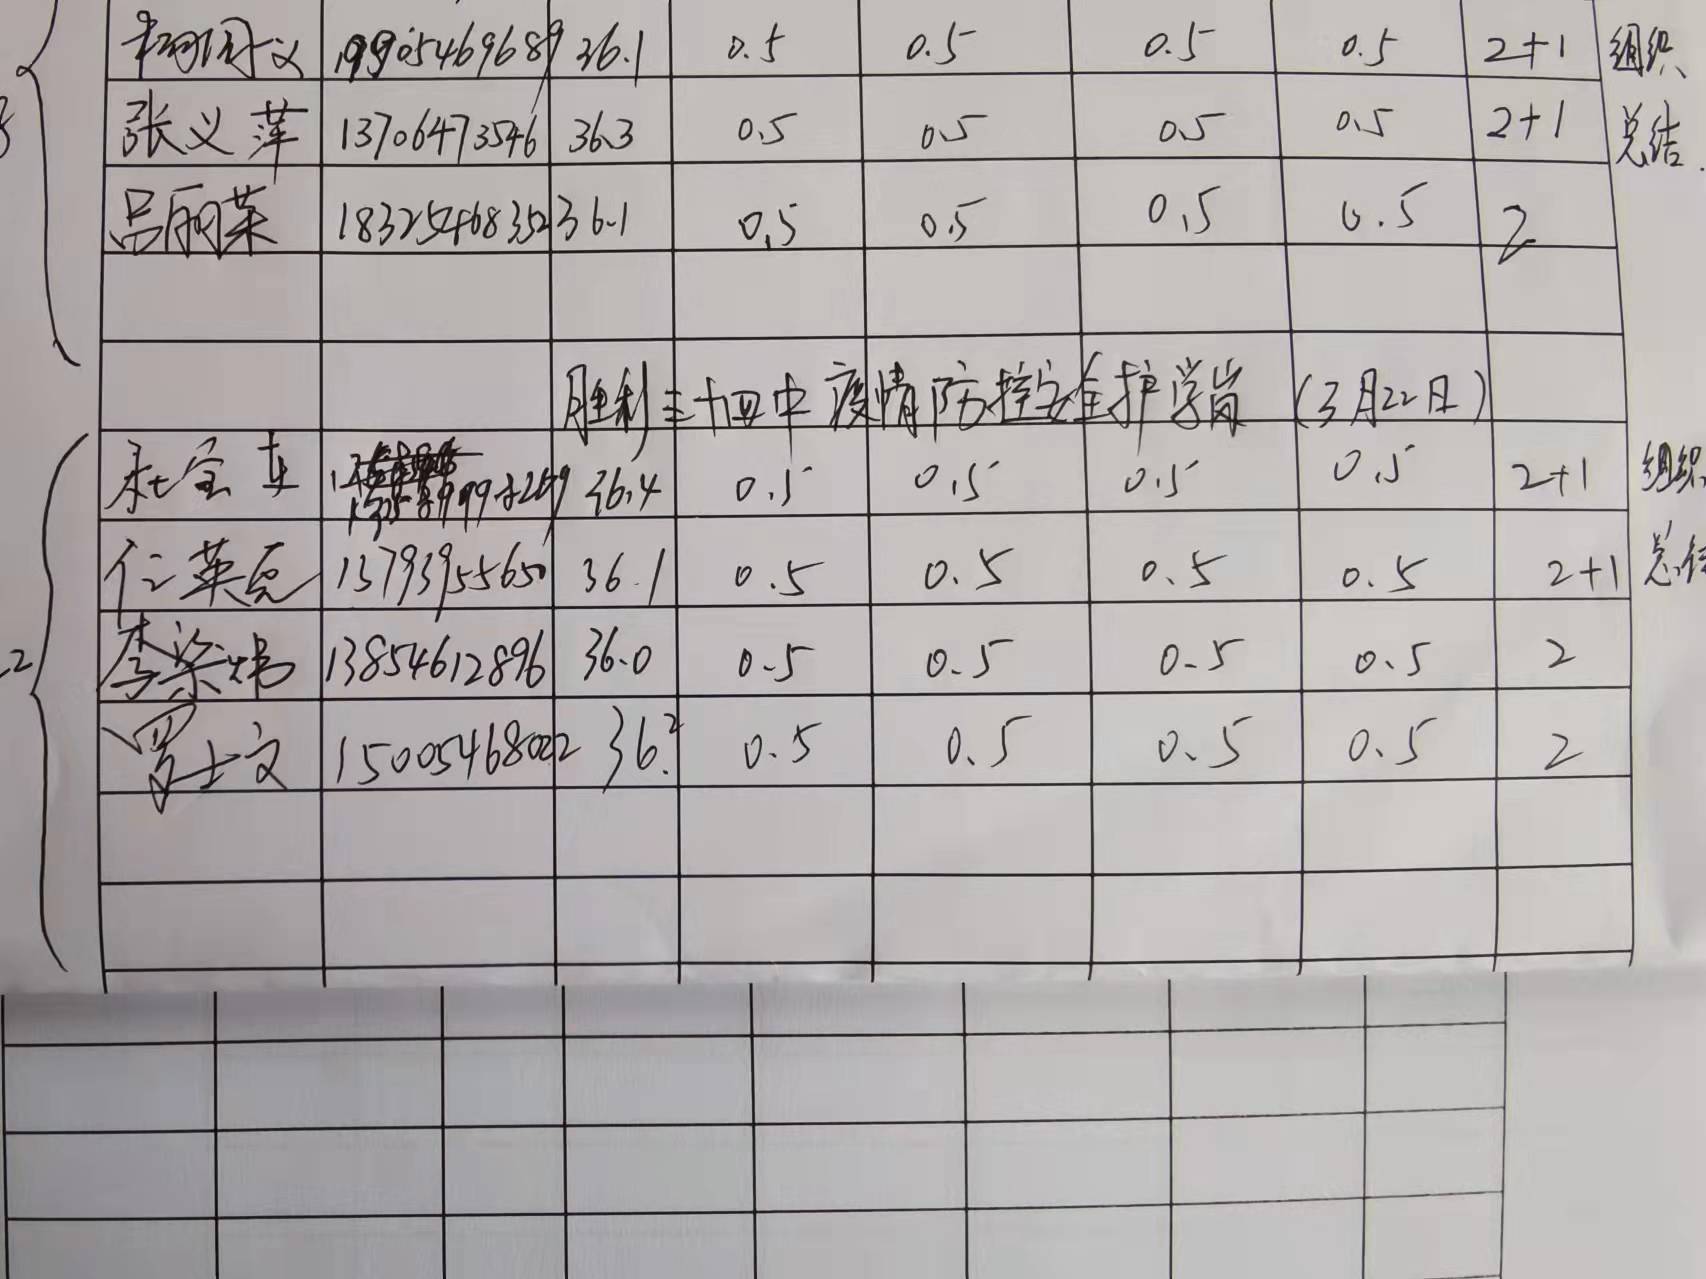 36.1 0.5 0.5 0.5 0.5 2+1 组织
张义萍 13706473546 36.3 0.5 0.5 0.5 0.5 2+1 总结.
吕丽荣 18325468352 36.1 0.5 0.5 0.5 0.5 2
胜利三十四中疫情防控安全护学岗 (3月22日)
36.4 0.5 0.5 0.5 0.5 2+1 组织
13793955650 36.1 0.5 0.5 0.5 0.5 2+1 总结
13854612896 36.0 0.5 0.5 0.5 0.5 2
罗士文 15005468022 36.2 0.5 0.5 0.5 0.5 2